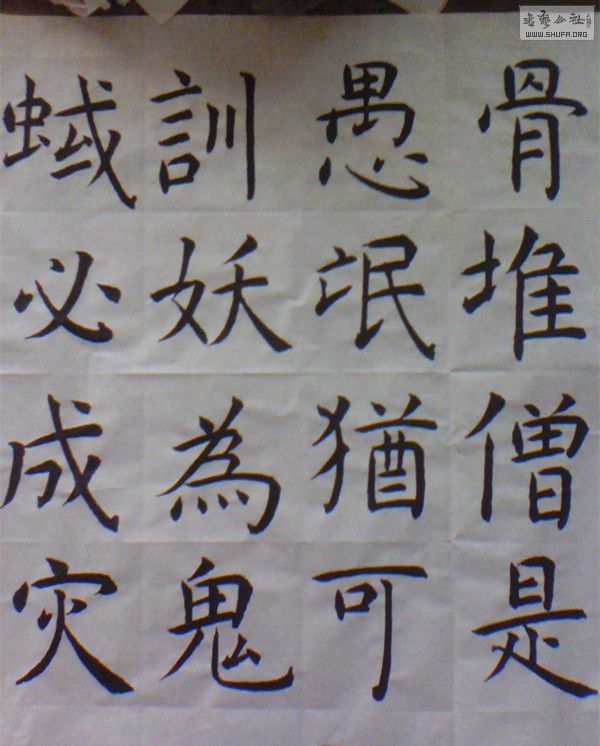 骨堆僧是
愚氓猶可
訓妖為鬼
蜮必成灾
書藝公社
WWW.SHUFA.ORG